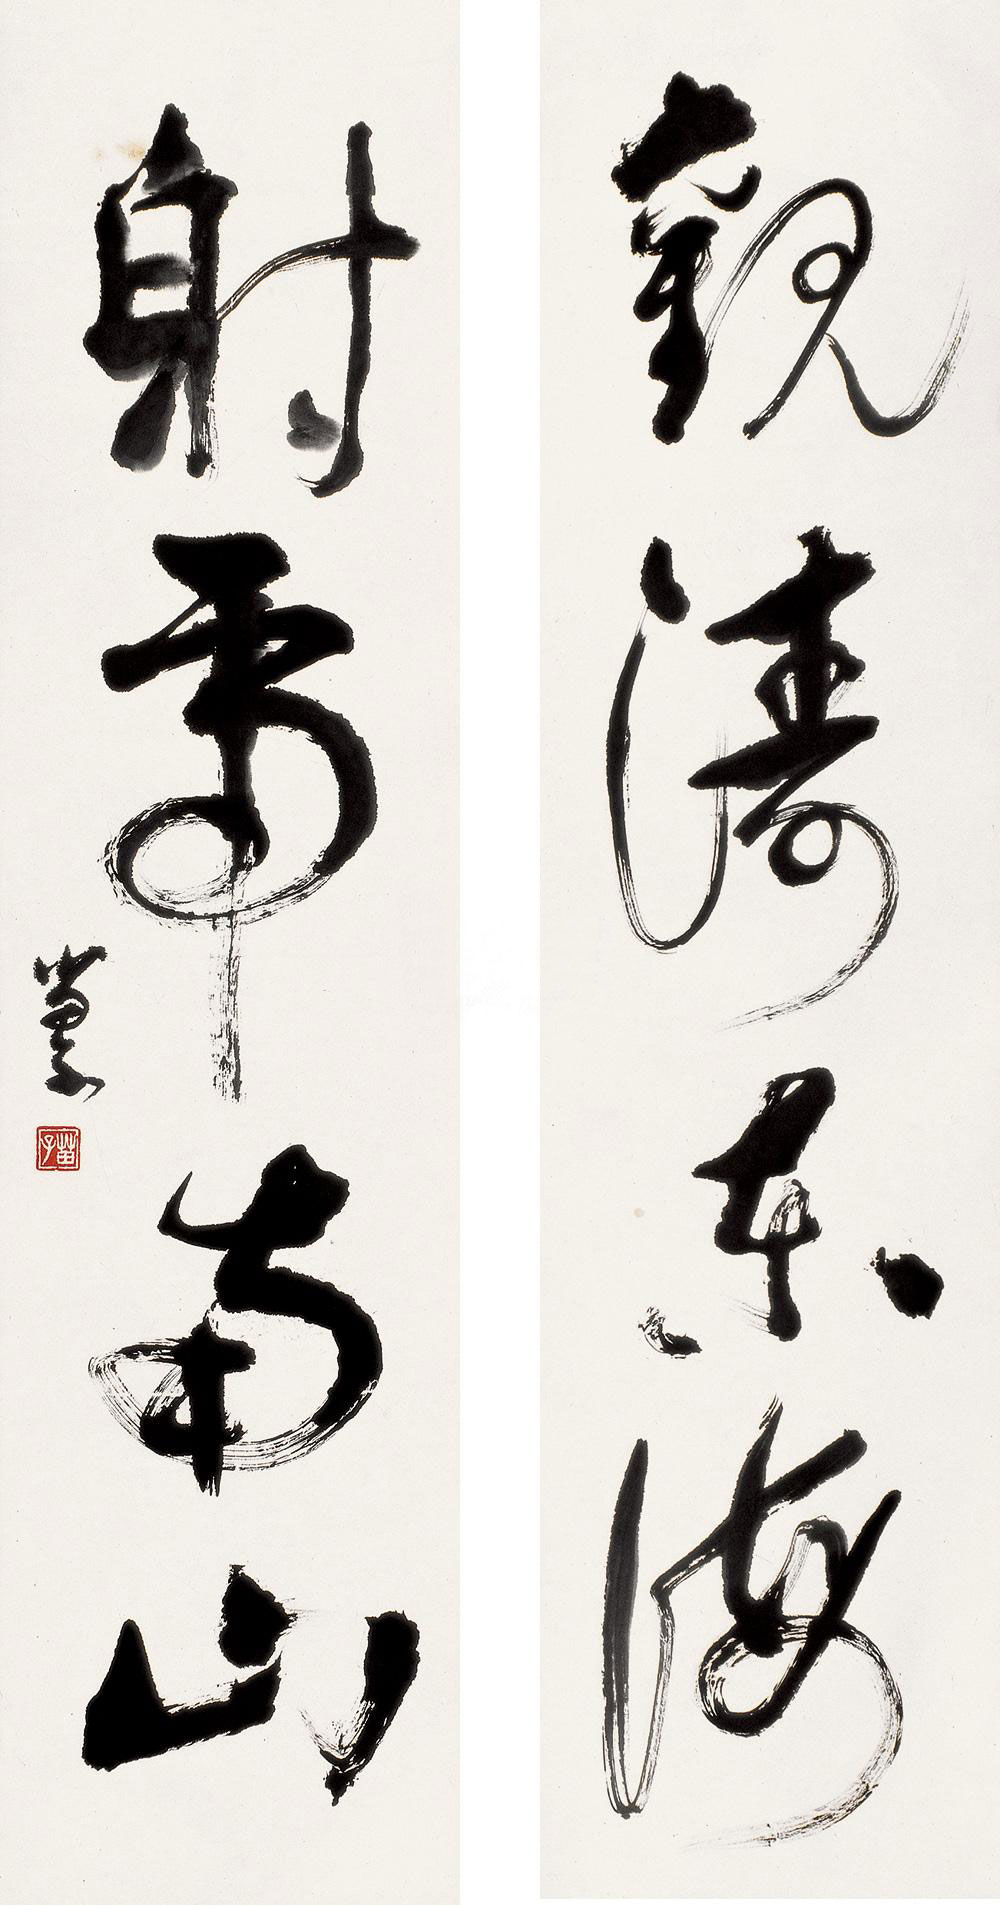 觀濤東海
射虎南山